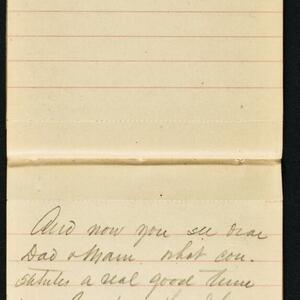 And now you see dear
Dad & Mam. what con-
stitutes a real good time